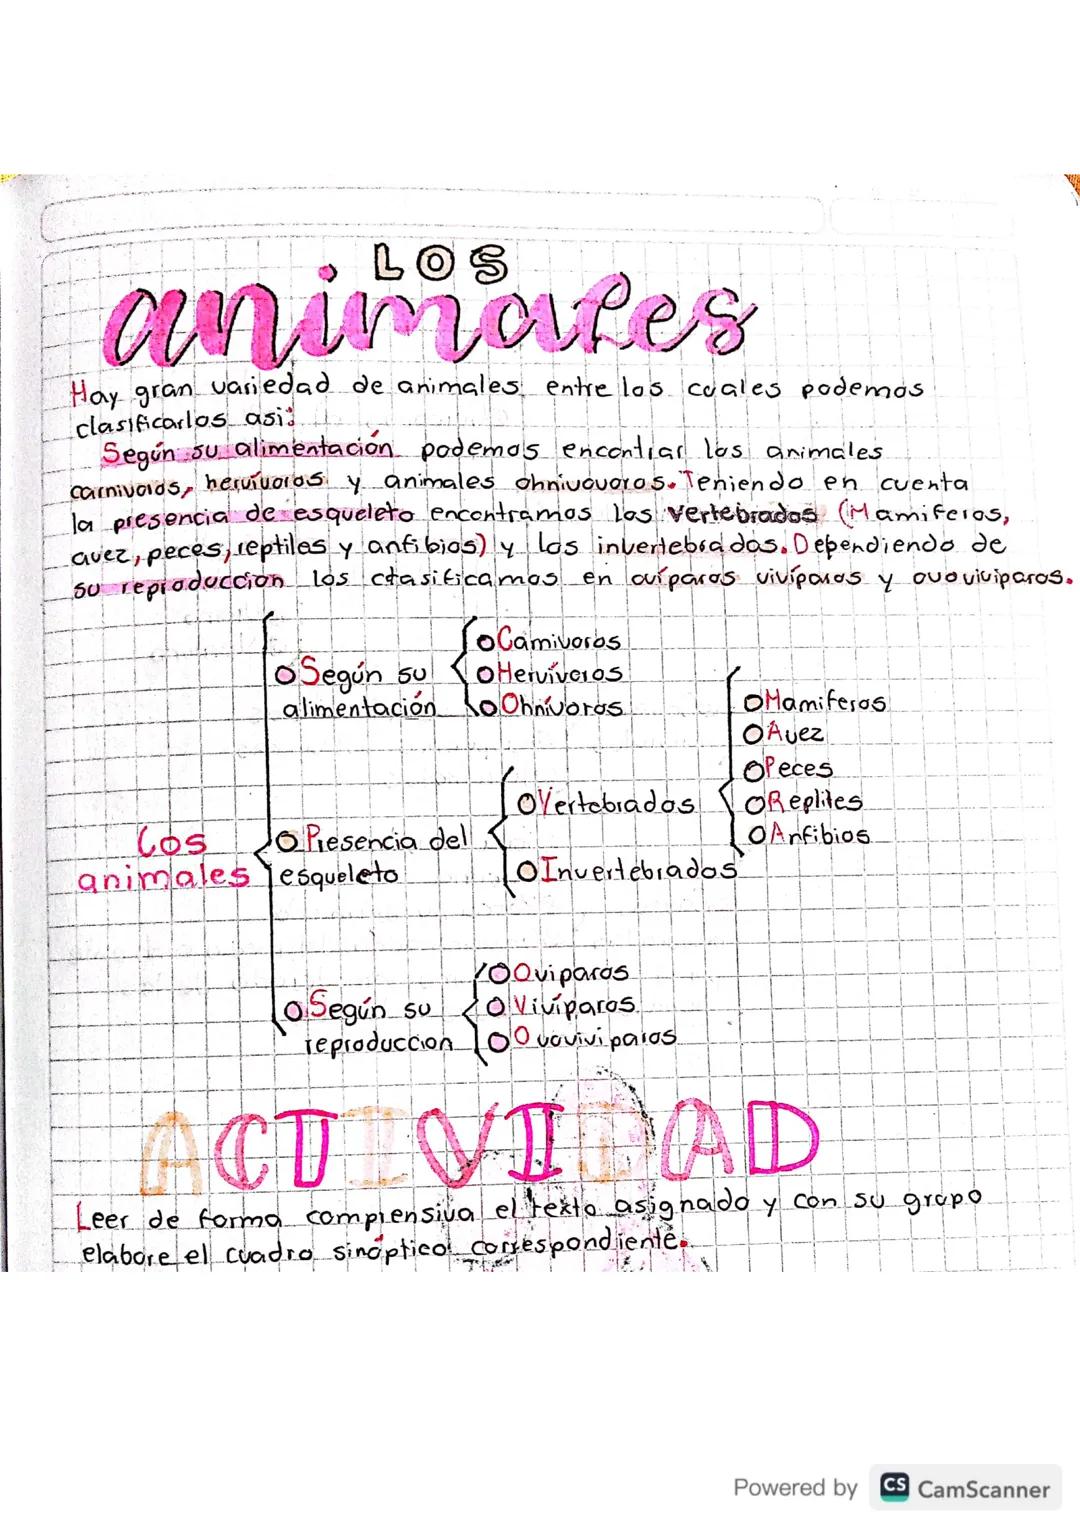 LOS
animales
Hay gran variedad de animales entre los cuales podemos
clasificarlos asi:
Según su alimentación podemos encontrar los animales
carnivoros, hervívoros y animales ohnivovoros. Teniendo en cuenta
la presencia de esqueleto encontramos los vertebrados (Mamiferos,
avez, peces, reptiles y anfibios) y los invertebrados. Dependiendo de
su reproduccion los clasificamos en ovíparos vivíparos y ovoviviparos.
Carnivoros
Según su
Hervívoros
alimentación
Ohnívoros
Mamiferos
Avez
Peces
Vertebrados
Reptiles
Los
Presencia del
Anfibios
animales
esqueleto
Invertebrados
Oviparos
Según su
Vivíparos
reproduccion
Ovoviviparos
ACTIVIDAD
Leer de forma comprensiva el texto asignado y con su grupo
elabore el cuadro sinóptico correspondiente.
Powered by CS CamScanner